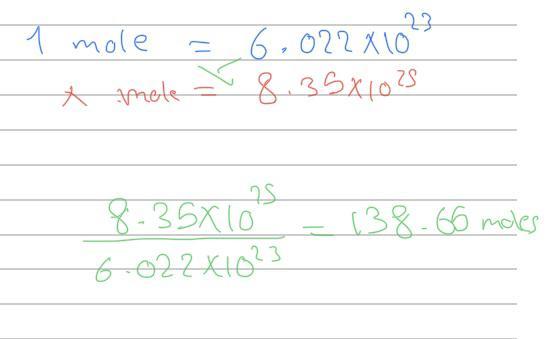 1 mole = 6.022×10²³
x mole = 8.35×10²⁵
8.35×10²⁵
6.022×10²³
= 138.66 moles